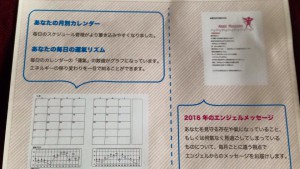 あなたの月別カレンダー
毎日のスケジュール管理がより書き込みやすくなりました。
あなたの毎日の運氣リズム
毎日のカレンダーの「運氣」の数値がグラフになっています。
エネルギーの移り変わりを一目で知ることができます。
2016年のエンジェルメッセージ
あなたを見守る存在や氣になっていること、
もしくは何氣なく見過ごしてしまっている
ものについて、毎月ごとに違う視点で
エンジェルからのメッセージをお届けします。